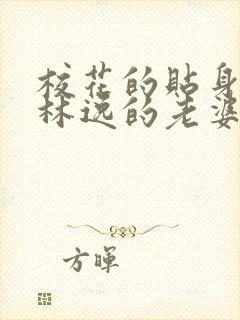 校花的贴身
林逸的老婆
方晖